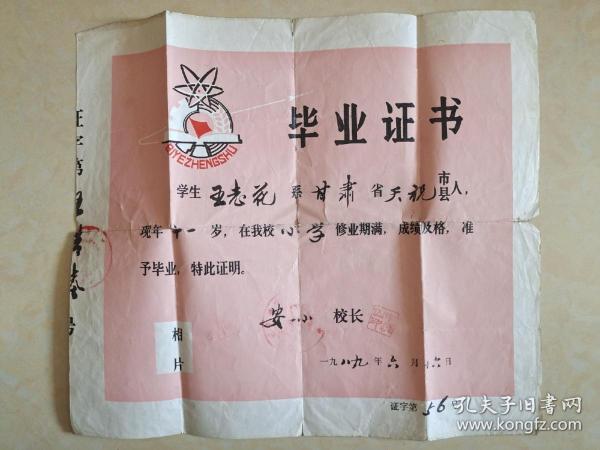 BIYEZHENGSHU
毕业证书
学生 王志花 系 甘肃 省 天祝 市县人，
现年 十一 岁，在我校 小学 修业期满，成绩及格，准
予毕业，特此证明。
安小 校长
相片
一九八九年六月 六日
证字第 56
证字第
号
孔夫子旧书网
www.kongfz.com